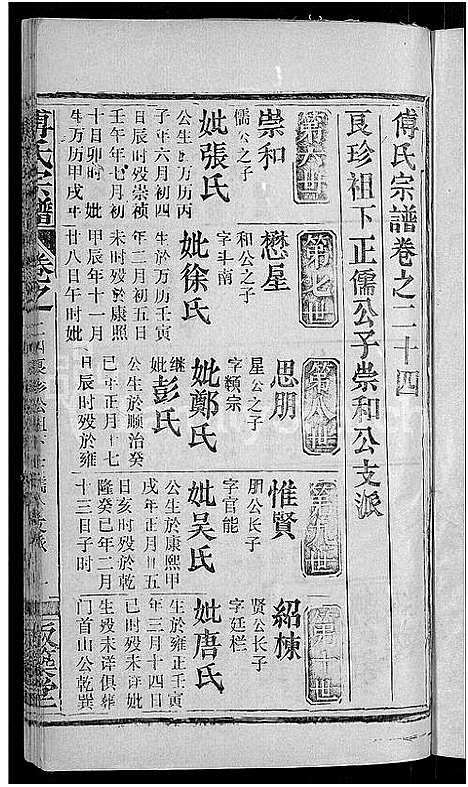 傅氏宗譜卷之二十四
良珍祖下正儒公子崇和公支派
第六世
崇和
儒公之子
妣張氏
公生萬历丙
子年六月初四
日辰时殁崇祯
壬午年七月初
十日卯时 妣
生万历甲戌年
第七世
懋星
和公之子
字斗南
妣徐氏
生於万历壬寅
年二月初五日
未时殁康熙
甲辰年十一月
廿八日午时妣
第八世
思朋
星公之子
字頼宗
妣鄭氏
继彭氏
公生於顺治癸
己年正月十七
日辰时殁於雍
第九世
惟賢
朋公长子
字官能
妣吴氏
公生於康熙甲
戌年正月五
日亥时殁於乾
隆癸巳年二月
十三日子时
第十世
紹棟
賢公长子
字廷栏
妣唐氏
生於雍正壬寅
年三月十四日
己时殁未详妣
生殁未详俱葬
门首山公乾巽
傅氏宗譜
卷之